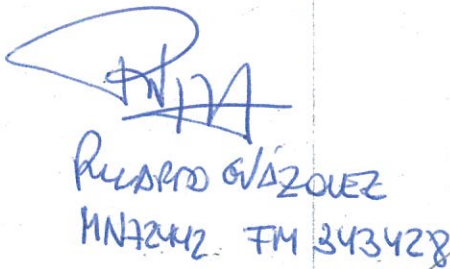 RICARDO GVÁZQUEZ
MN72442 FM 343428